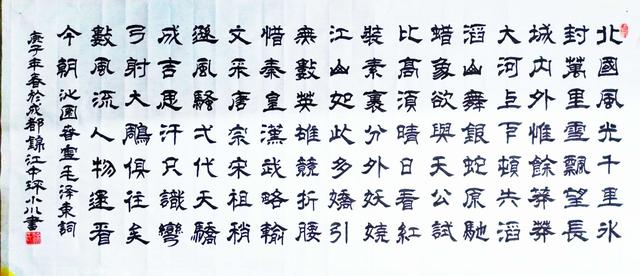 北國風光千里冰
封萬里雪飄望長
城内外惟餘莽莽
大河上下頓失滔
滔山舞銀蛇原馳
蜡象欲與天公試
比高須晴日看紅
裝素裹分外妖嬈
江山如此多嬌引
無數英雄競折腰
惜秦皇漢武略輸
文采唐宗宋祖稍
遜風騷弌代天驕
成吉思汗只識彎
弓射大鵰俱往矣
數風流人物還看
今朝 沁園春雪毛泽東詞
庚子年春於成都錦江中坪小川書